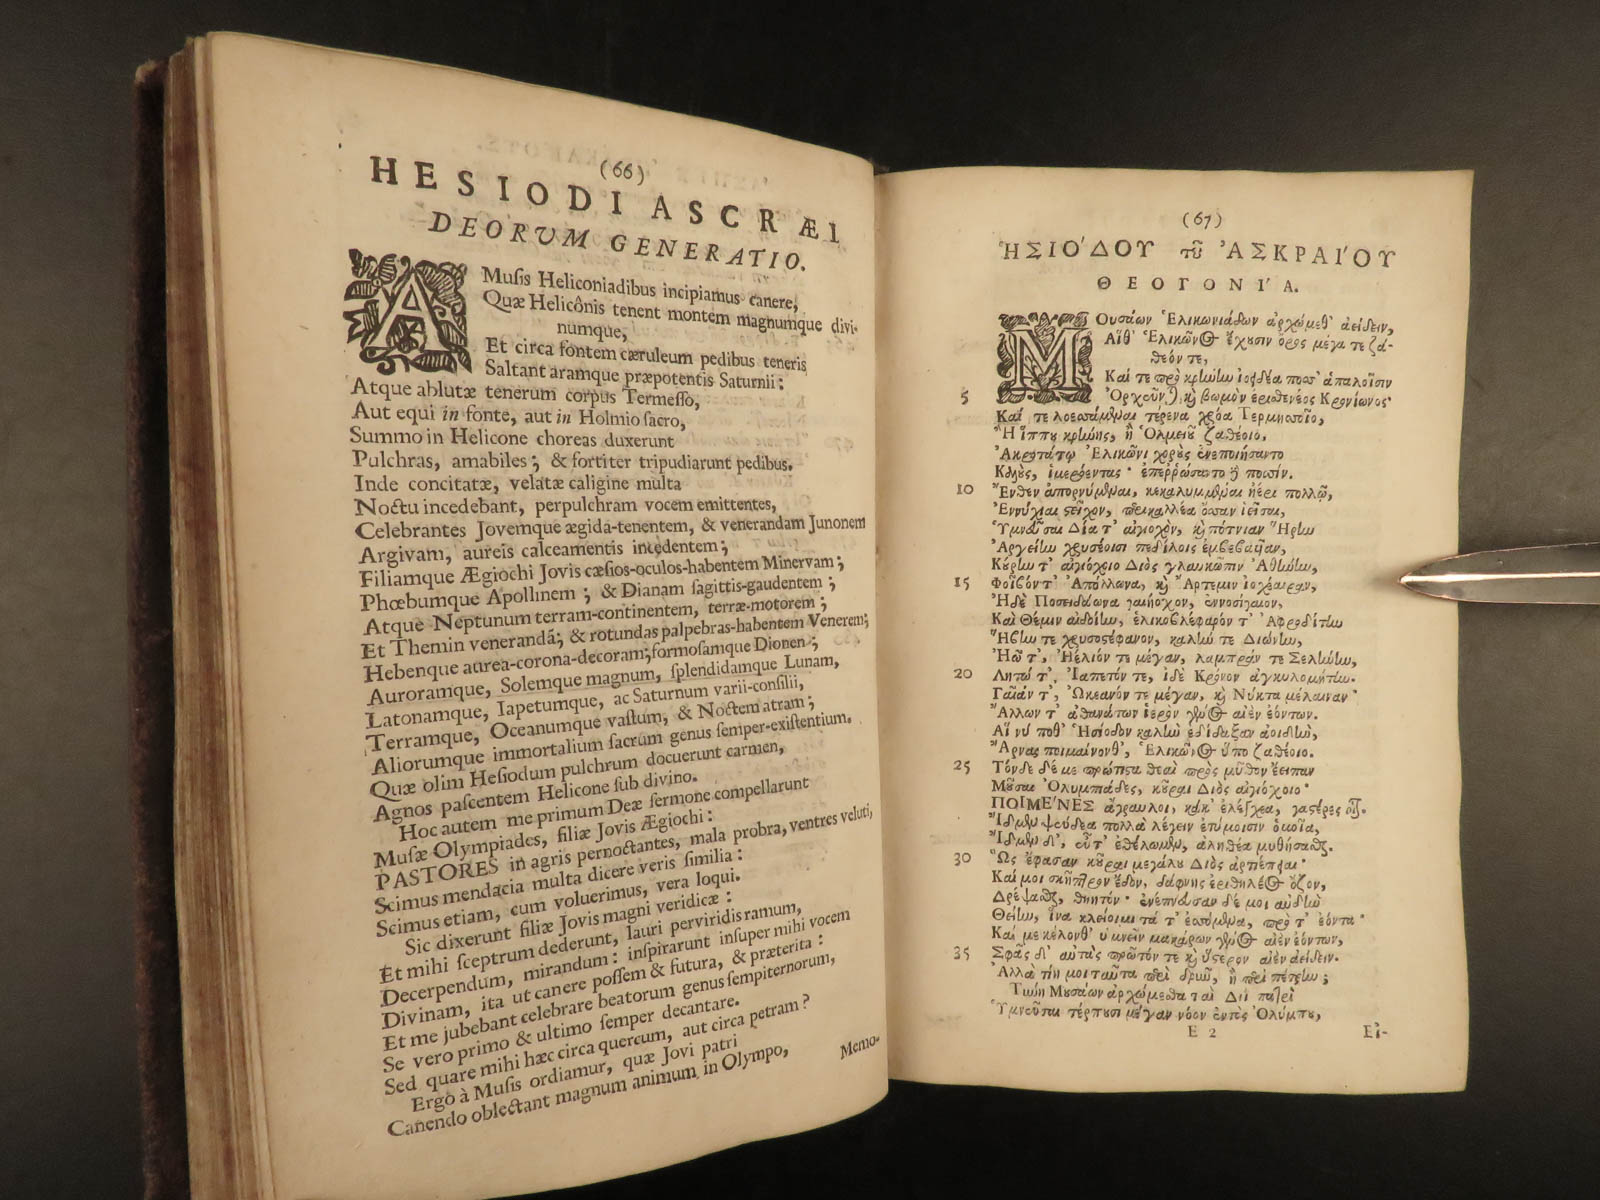 (66)
HESIODI ASCRÆI
DEORUM GENERATIO.
A Musis Heliconiadibus incipiamus canere,
Quæ Helicônis tenent montem magnumque divi-
numque,
Et circa fontem cæruleum pedibus teneris
Saltant aramque præpotentis Saturnii:
Atque ablutæ tenerum corpus Termesso,
Aut equi in fonte, aut in Holmio sacro,
Summo in Helicone choreas duxerunt
Pulchras, amabiles; & fortiter tripudiarunt pedibus.
Inde concitatæ, velatæ caligine multa
Noctu incedebant, perpulchram vocem emittentes,
Celebrantes Jovemque ægida-tenentem, & venerandam Junonem
Argivam, aureis calceamentis incedentem;
Filiamque Ægiochi Jovis cæsios-oculos-habentem Minervam;
Phœbumque Apollinem; & Dianam sagittis-gaudentem;
Atque Neptunum terram-continentem, terræ-motorem;
Et Themin venerandã; & rotundas palpebras-habentem Venerem;
Hebenque aurea-corona-decoram; formosamque Dionen;
Auroramque, Solemque magnum, splendidamque Lunam,
Latonamque, Iapetumque, ac Saturnum varii-consilii,
Terramque, Oceanumque vastum, & Noctem atram;
Aliorumque immortalium sacrum genus semper-existentium.
Quæ olim Hesiodum pulchrum docuerunt carmen,
Agnos pascentem Helicone sub divino.
Hoc autem me primum Deæ sermone compellarunt
Musæ Olympiades, filiæ Jovis Ægiochi:
PASTORES in agris pernoctantes, mala probra, ventres veluti,
Scimus mendacia multa dicere veris similia:
Scimus etiam, cum voluerimus, vera loqui.
Sic dixerunt filiæ Jovis magni veridicæ:
Et mihi sceptrum dederunt, lauri perviridis ramum,
Decerpendum, mirandum: inspirarunt insuper mihi vocem
Divinam, ita ut canere possem & futura, & præterita:
Et me jubebant celebrare beatorum genus sempiternorum,
Se vero primo & ultimo semper decantare.
Sed quare mihi hæc circa quercum, aut circa petram?
Ergo à Musis ordiamur, quæ Jovi patri
Canendo oblectant magnum animum in Olympo,
Memo-
(67)
ἩΣΙΟΔΟΥ τοῦ ἈΣΚΡΑΙΟΥ
ΘΕΟΓΟΝΙΑ.
ΜΟυσάων Ἑλικωνιάδων ἀρχώμεθ' ἀείδειν,
Αἵθ' Ἑλικῶνος ἔχουσιν ὄρος μέγα τε ζά-
θεόν τε,
Καί τε περὶ κρήνην ἰοειδέα πόσσ' ἁπαλοῖσιν
5 Ὀρχοῦνται, καὶ βωμὸν ἐρισθενέος Κρονίωνος·
Καί τε λοεσσάμεναι τέρενα χρόα Τερμησσοῖο,
Ἢ ἵππου κρήνης, ἢ Ὀλμειοῦ ζαθέοιο,
Ἀκροτάτῳ Ἑλικῶνι χοροὺς ἐνεποιήσαντο
Καλοὺς, ἱμερόεντας· ἐπερρώσαντο δὲ ποσσίν.
10 Ἔνθεν ἀπορνύμεναι, κεκαλυμμέναι ἠέρι πολλῷ,
Ἐννύχιαι στεῖχον, περικαλλέα ὄσσαν ἱεῖσαι,
Ὑμνεῦσαι Δία τ' αἰγίοχον, καὶ πότνιαν Ἥρην
Ἀργείην χρυσέοισι πεδίλοις ἐμβεβαυῖαν,
Κούρην τ' αἰγιόχοιο Διὸς γλαυκῶπιν Ἀθήνην,
15 Φοῖβόν τ' Ἀπόλλωνα, καὶ Ἄρτεμιν ἰοχέαιραν,
Ἠδὲ Ποσειδάωνα γαιήοχον, ἐννοσίγαιον,
Καὶ Θέμιν αἰδοίην, ἑλικοβλέφαρόν τ' Ἀφροδίτην
Ἥβην τε χρυσοστέφανον, καλήν τε Διώνην,
Ἠῶ τ', Ἠέλιόν τε μέγαν, λαμπράν τε Σελήνην,
20 Λητώ τ', Ἰαπετόν τε, ἰδὲ Κρόνον ἀγκυλομήτην·
Γαῖάν τ', Ὠκεανόν τε μέγαν, καὶ Νύκτα μέλαιναν·
Ἄλλων τ' ἀθανάτων ἱερὸν γένος αἰὲν ἐόντων.
Αἵ νύ ποθ' Ἡσίοδον καλὴν ἐδίδαξαν ἀοιδὴν,
Ἄρνας ποιμαίνονθ', Ἑλικῶνος ὕπο ζαθέοιο.
25 Τόνδε δέ με πρώτιστα θεαὶ πρὸς μῦθον ἔειπαν
Μοῦσαι Ὀλυμπιάδες, κοῦραι Διὸς αἰγιόχοιο·
ΠΟΙΜΕΝΕΣ ἄγραυλοι, κάκ' ἐλέγχεα, γαστέρες οἷον.
Ἴδμεν ψεύδεα πολλὰ λέγειν ἐτύμοισιν ὁμοῖα,
Ἴδμεν δ', εὖτ' ἐθέλωμεν, ἀληθέα μυθήσασθαι.
30 Ὣς ἔφασαν κοῦραι μεγάλου Διὸς ἀρτιέπειαι·
Καί μοι σκῆπτρον ἔδον, δάφνης ἐριθηλέος ὄζον,
Δρέψασθαι, θηητόν· ἐνέπνευσαν δέ μοι αὐδὴν
Θείην, ἵνα κλείοιμι τά τ' ἐσσόμενα, πρό τ' ἐόντα·
Καί με κέλονθ' ὑμνεῖν μακάρων γένος αἰὲν ἐόντων,
35 Σφᾶς δ' αὐτὰς πρῶτόν τε καὶ ὕστερον αἰὲν ἀείδειν.
Ἀλλὰ τίη μοι ταῦτα περὶ δρῦν, ἢ περὶ πέτρην;
Τύνη Μουσάων ἀρχώμεθα ταὶ Διῒ πατρὶ
Ὑμνεῦσαι τέρπουσι μέγαν νόον ἐντὸς Ὀλύμπου,
E 2
Εἰ-